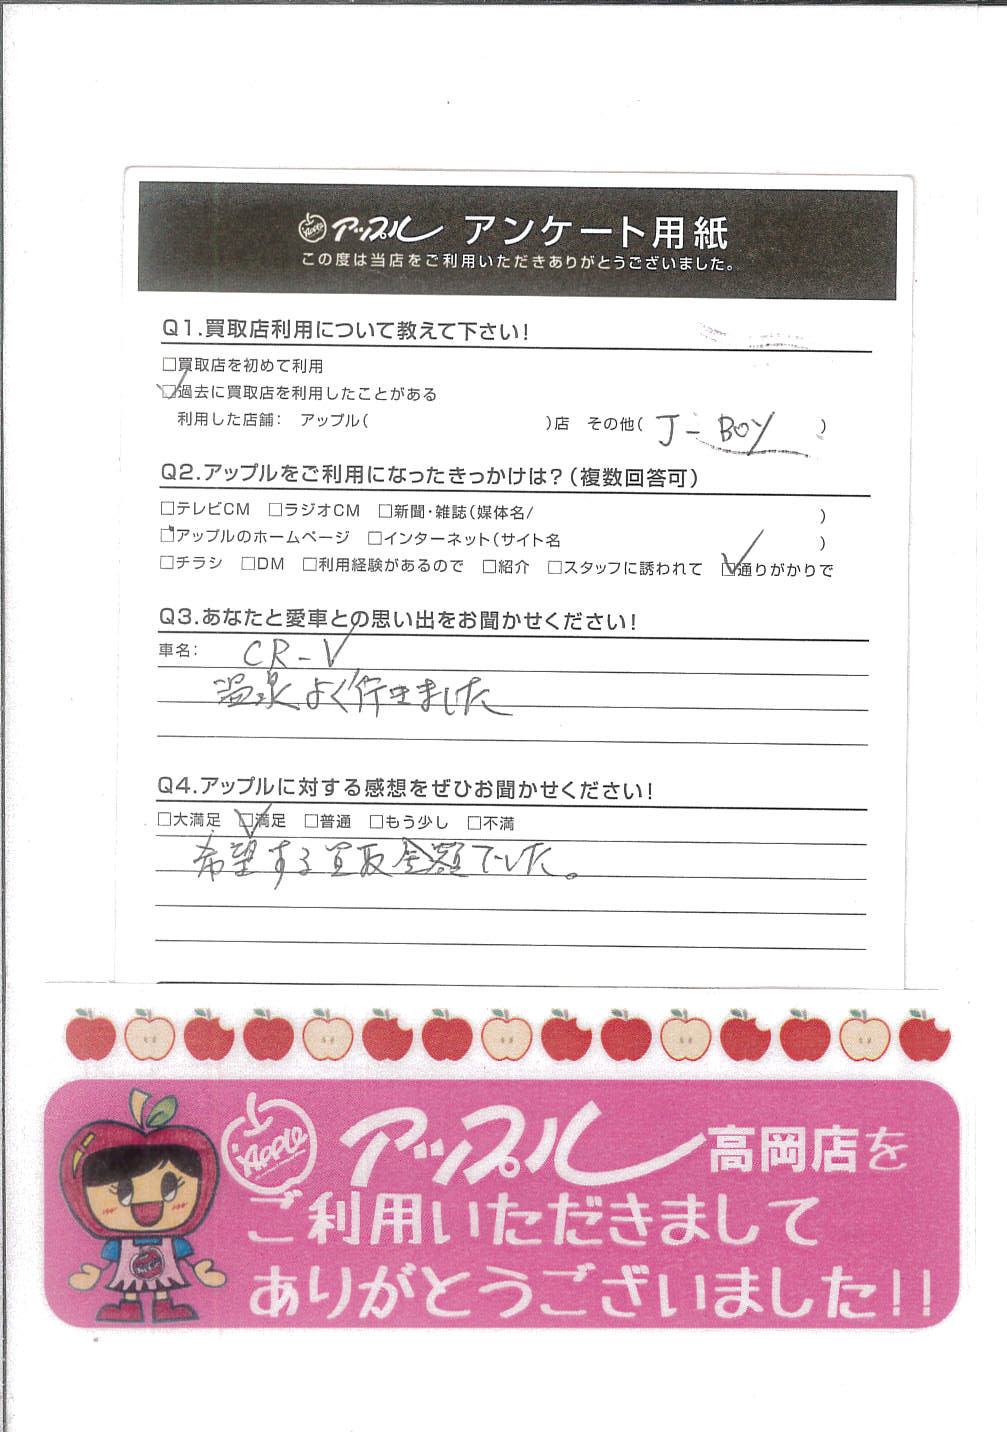 Apple アップル アンケート用紙
この度は当店をご利用いただきありがとうございました。
Q1.買取店利用について教えて下さい!
□買取店を初めて利用
☑過去に買取店を利用したことがある
利用した店舗: アップル( )店 その他( J-BOY )
Q2.アップルをご利用になったきっかけは?(複数回答可)
□テレビCM □ラジオCM □新聞・雑誌(媒体名/ )
□アップルのホームページ □インターネット(サイト名 )
□チラシ □DM □利用経験があるので □紹介 □スタッフに誘われて ☑通りがかりで
Q3.あなたと愛車との思い出をお聞かせください!
車名: CR-V
温泉よく行きました
Q4.アップルに対する感想をぜひお聞かせください!
□大満足 ☑満足 □普通 □もう少し □不満
希望する買取金額でした。
Apple アップル 高岡店を
ご利用いただきまして
ありがとうございました!!